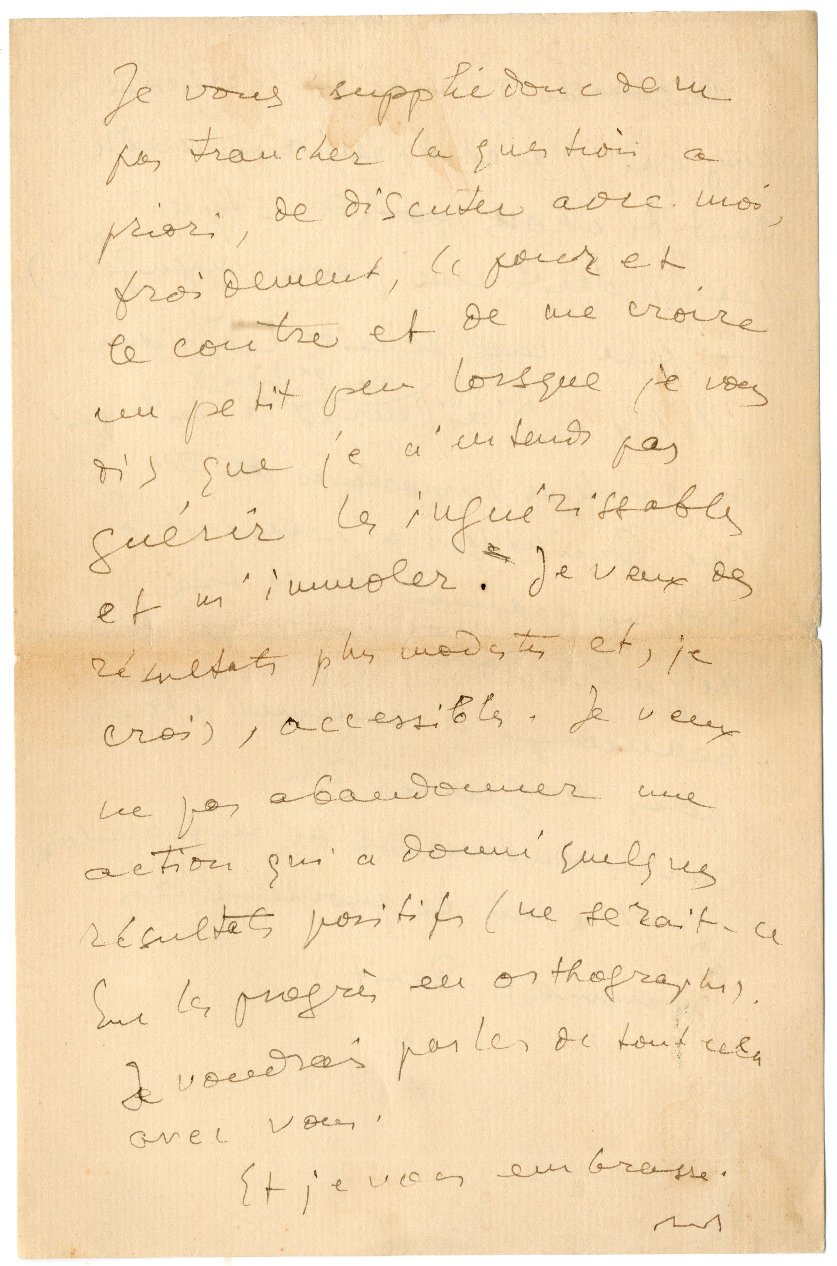 Je vous supplie donc de ne
pas trancher la question a
priori, de discuter avec moi,
froidement, le pour et
le contre et de me croire
un petit peu lorsque je vous
dis que je n'entends pas
guérir les inguérissables
et m'immoler. Je veux des
résultats plus modestes et, je
crois, accessibles. Je veux
ne pas abandonner une
action qui a donné quelques
résultats positifs (ne serait-ce
que les progrès en orthographe).
Je voudrais parler de tout cela
avec vous.
Et je vous embrasse.